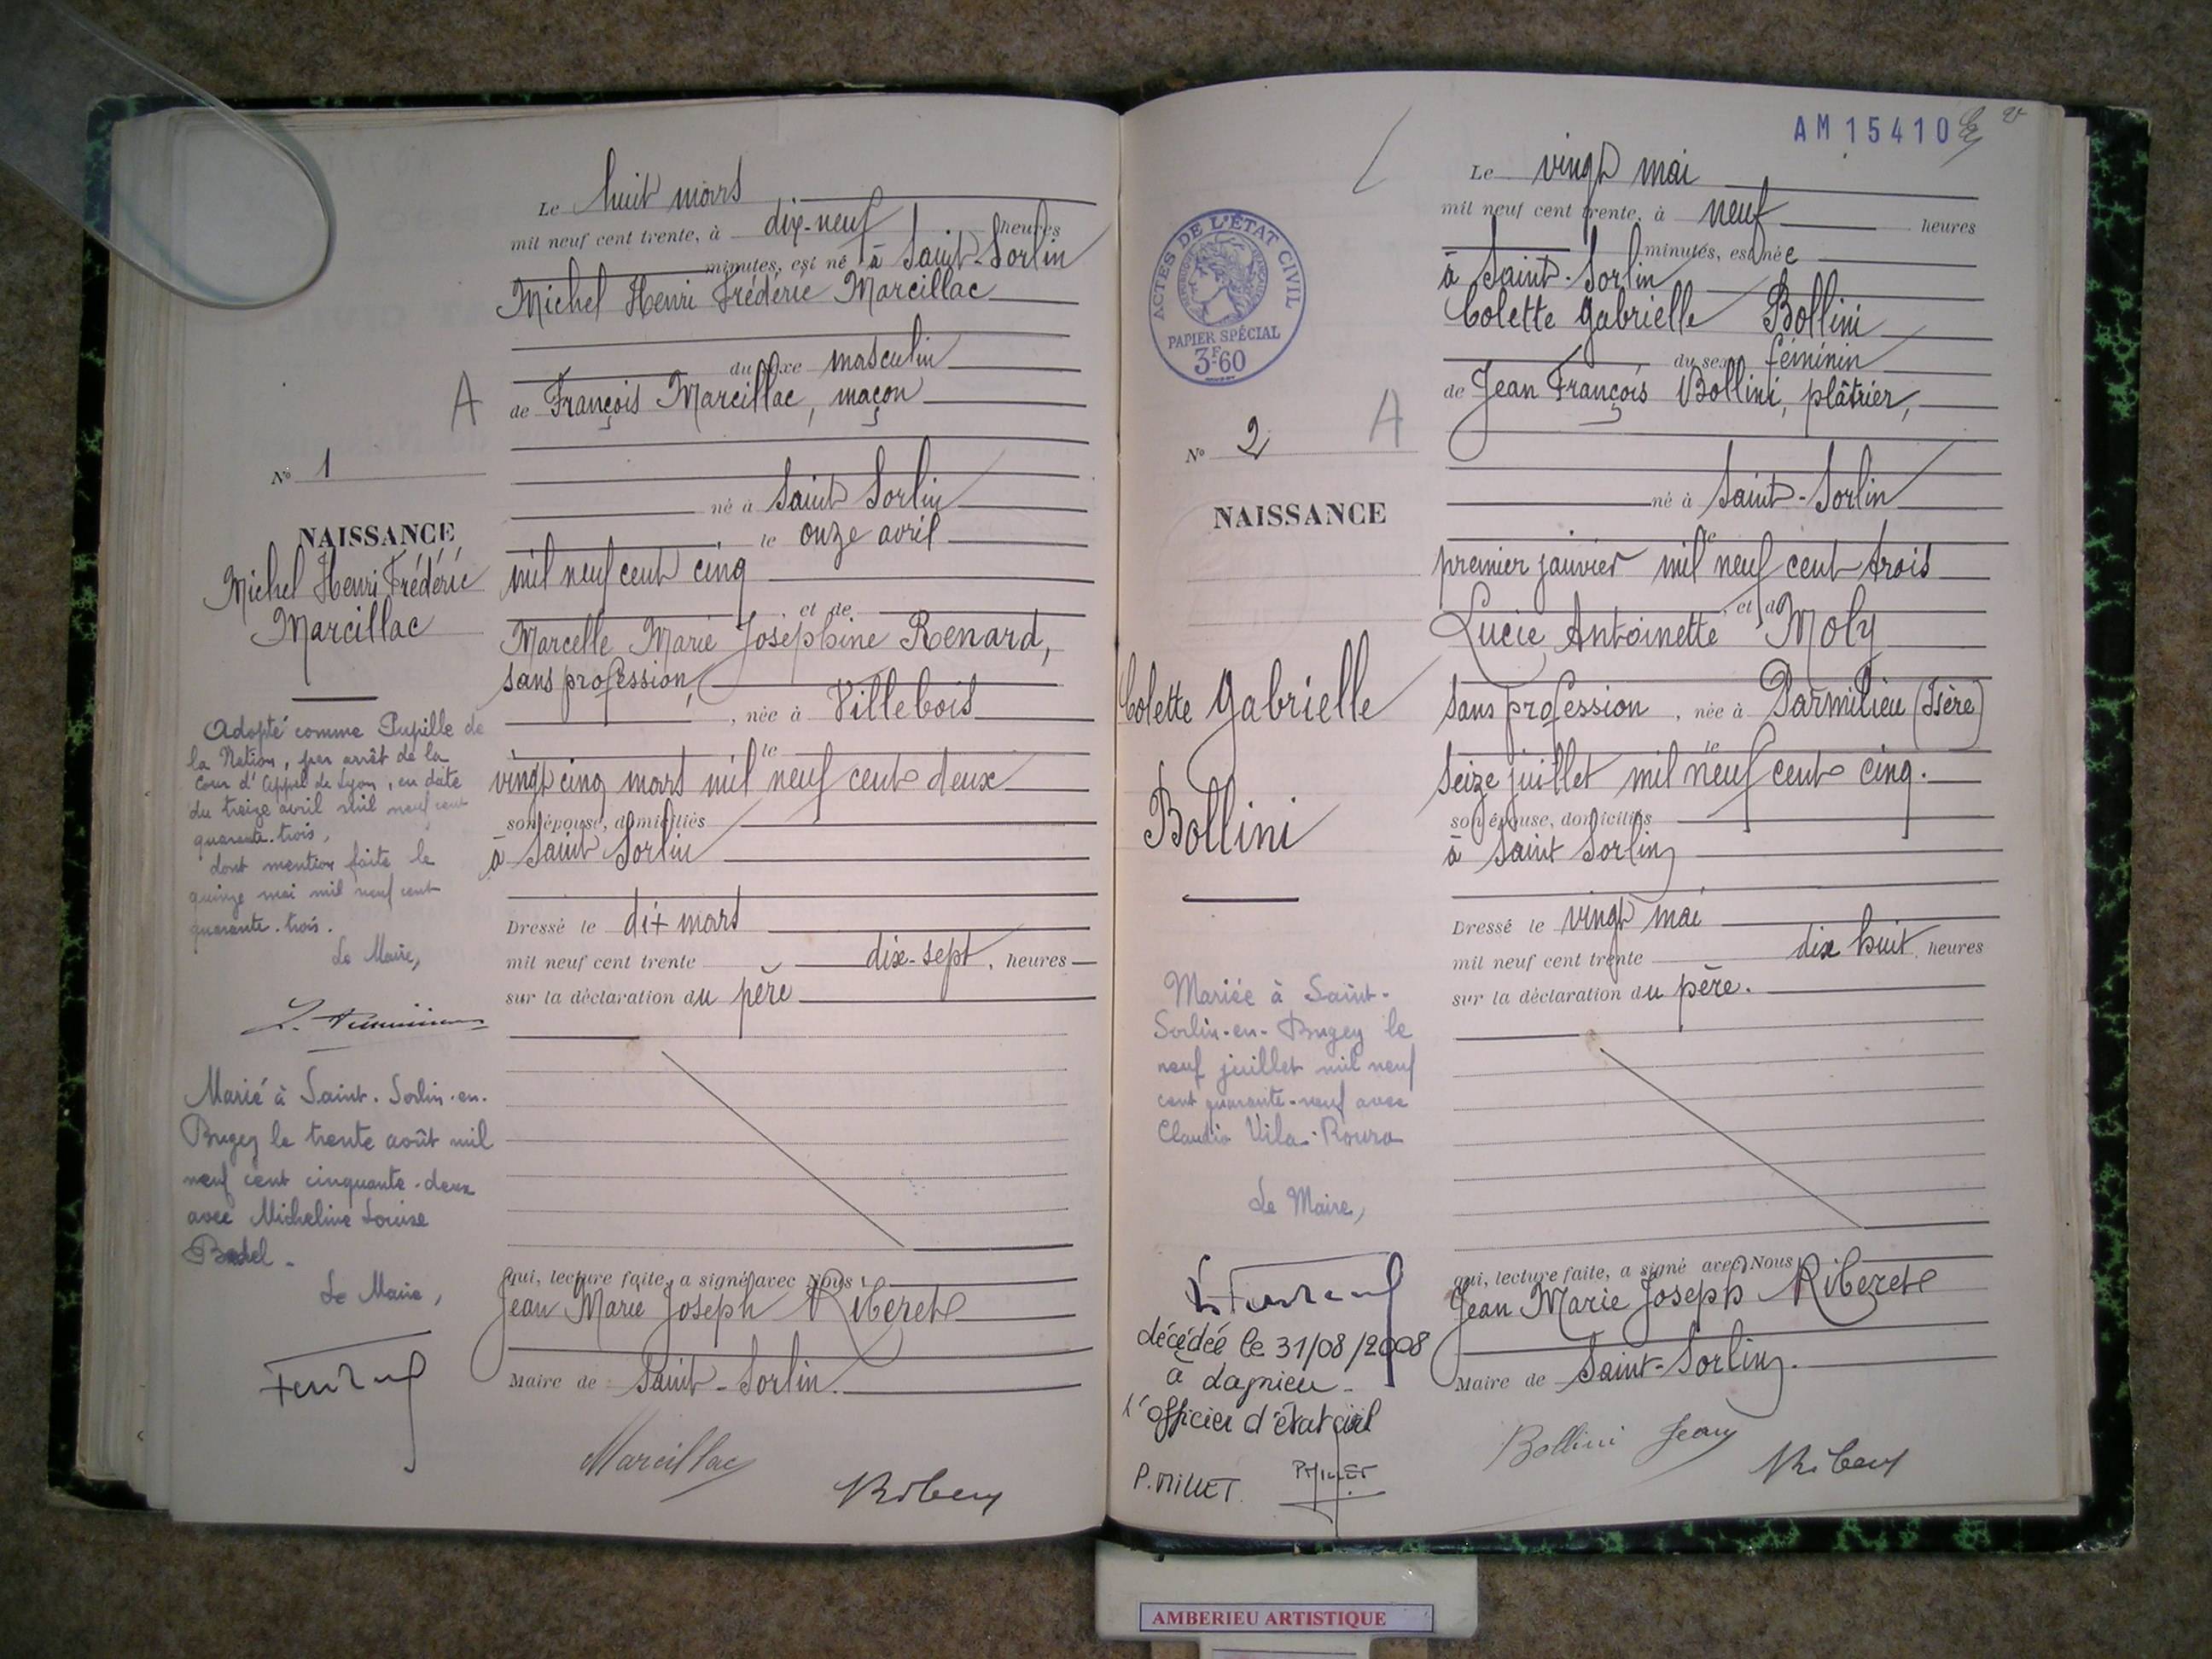 Le huit mars
mil neuf cent trente, à dix-neuf heures
minutes, est né à Saint-Sorlin
Michel Henri Frédéric Marcillac
du sexe masculin
A
de François Marcillac, maçon
N° 1
né à Saint Sorlin
NAISSANCE
le onze avril
Michel Henri Frédéric
Marcillac
mil neuf cent cinq
, et de
Marcelle Marie Joséphine Renard,
sans profession,
, née à Villebois
le
vingt cinq mars mil neuf cent deux
son épouse, domiciliés
à Saint Sorlin
Adopté comme Pupille de
la Nation, par arrêt de la
Cour d'Appel de Lyon, en date
du treize avril mil neuf cent
quarante-trois,
dont mention faite le
quinze mai mil neuf cent
quarante-trois.
Le Maire,
Dressé le dix mars
mil neuf cent trente dix-sept, heures
sur la déclaration du père
Marié à Saint-Sorlin-en-
Bugey le trente août mil
neuf cent cinquante-deux
avec Micheline Louise
Le Maire,
qui, lecture faite, a signé avec Nous
Jean Marie Joseph Riberet
Maire de Saint-Sorlin.
Marcillac
AM 15410
Le vingt mai
mil neuf cent trente, à neuf heures
minutes, est née
à Saint-Sorlin
Colette Gabrielle Bollini
du sexe féminin
de Jean François Bollini, plâtrier,
ACTES DE L'ÉTAT CIVIL
PAPIER SPÉCIAL
3F60
N° 2
A
né à Saint-Sorlin
NAISSANCE
le
premier janvier mil neuf cent trois
, et de
Lucie Antoinette Moly
Colette Gabrielle
Bollini
sans profession, née à Parmilieu (Isère)
le
seize juillet mil neuf cent cinq.
son épouse, domiciliés
à Saint Sorlin
Dressé le vingt mai
mil neuf cent trente dix huit, heures
sur la déclaration du père.
Mariée à Saint-
Sorlin-en-Bugey le
neuf juillet mil neuf
cent quarante-neuf avec
Claudio Vila-Roura
Le Maire,
décédée le 31/08/2008
à Dagnieu -
l'officier d'état civil
P. MILLET. P. MILLET
qui, lecture faite, a signé avec Nous
Jean Marie Joseph Riberet
Maire de Saint-Sorlin.
Bollini Jean
AMBERIEU ARTISTIQUE